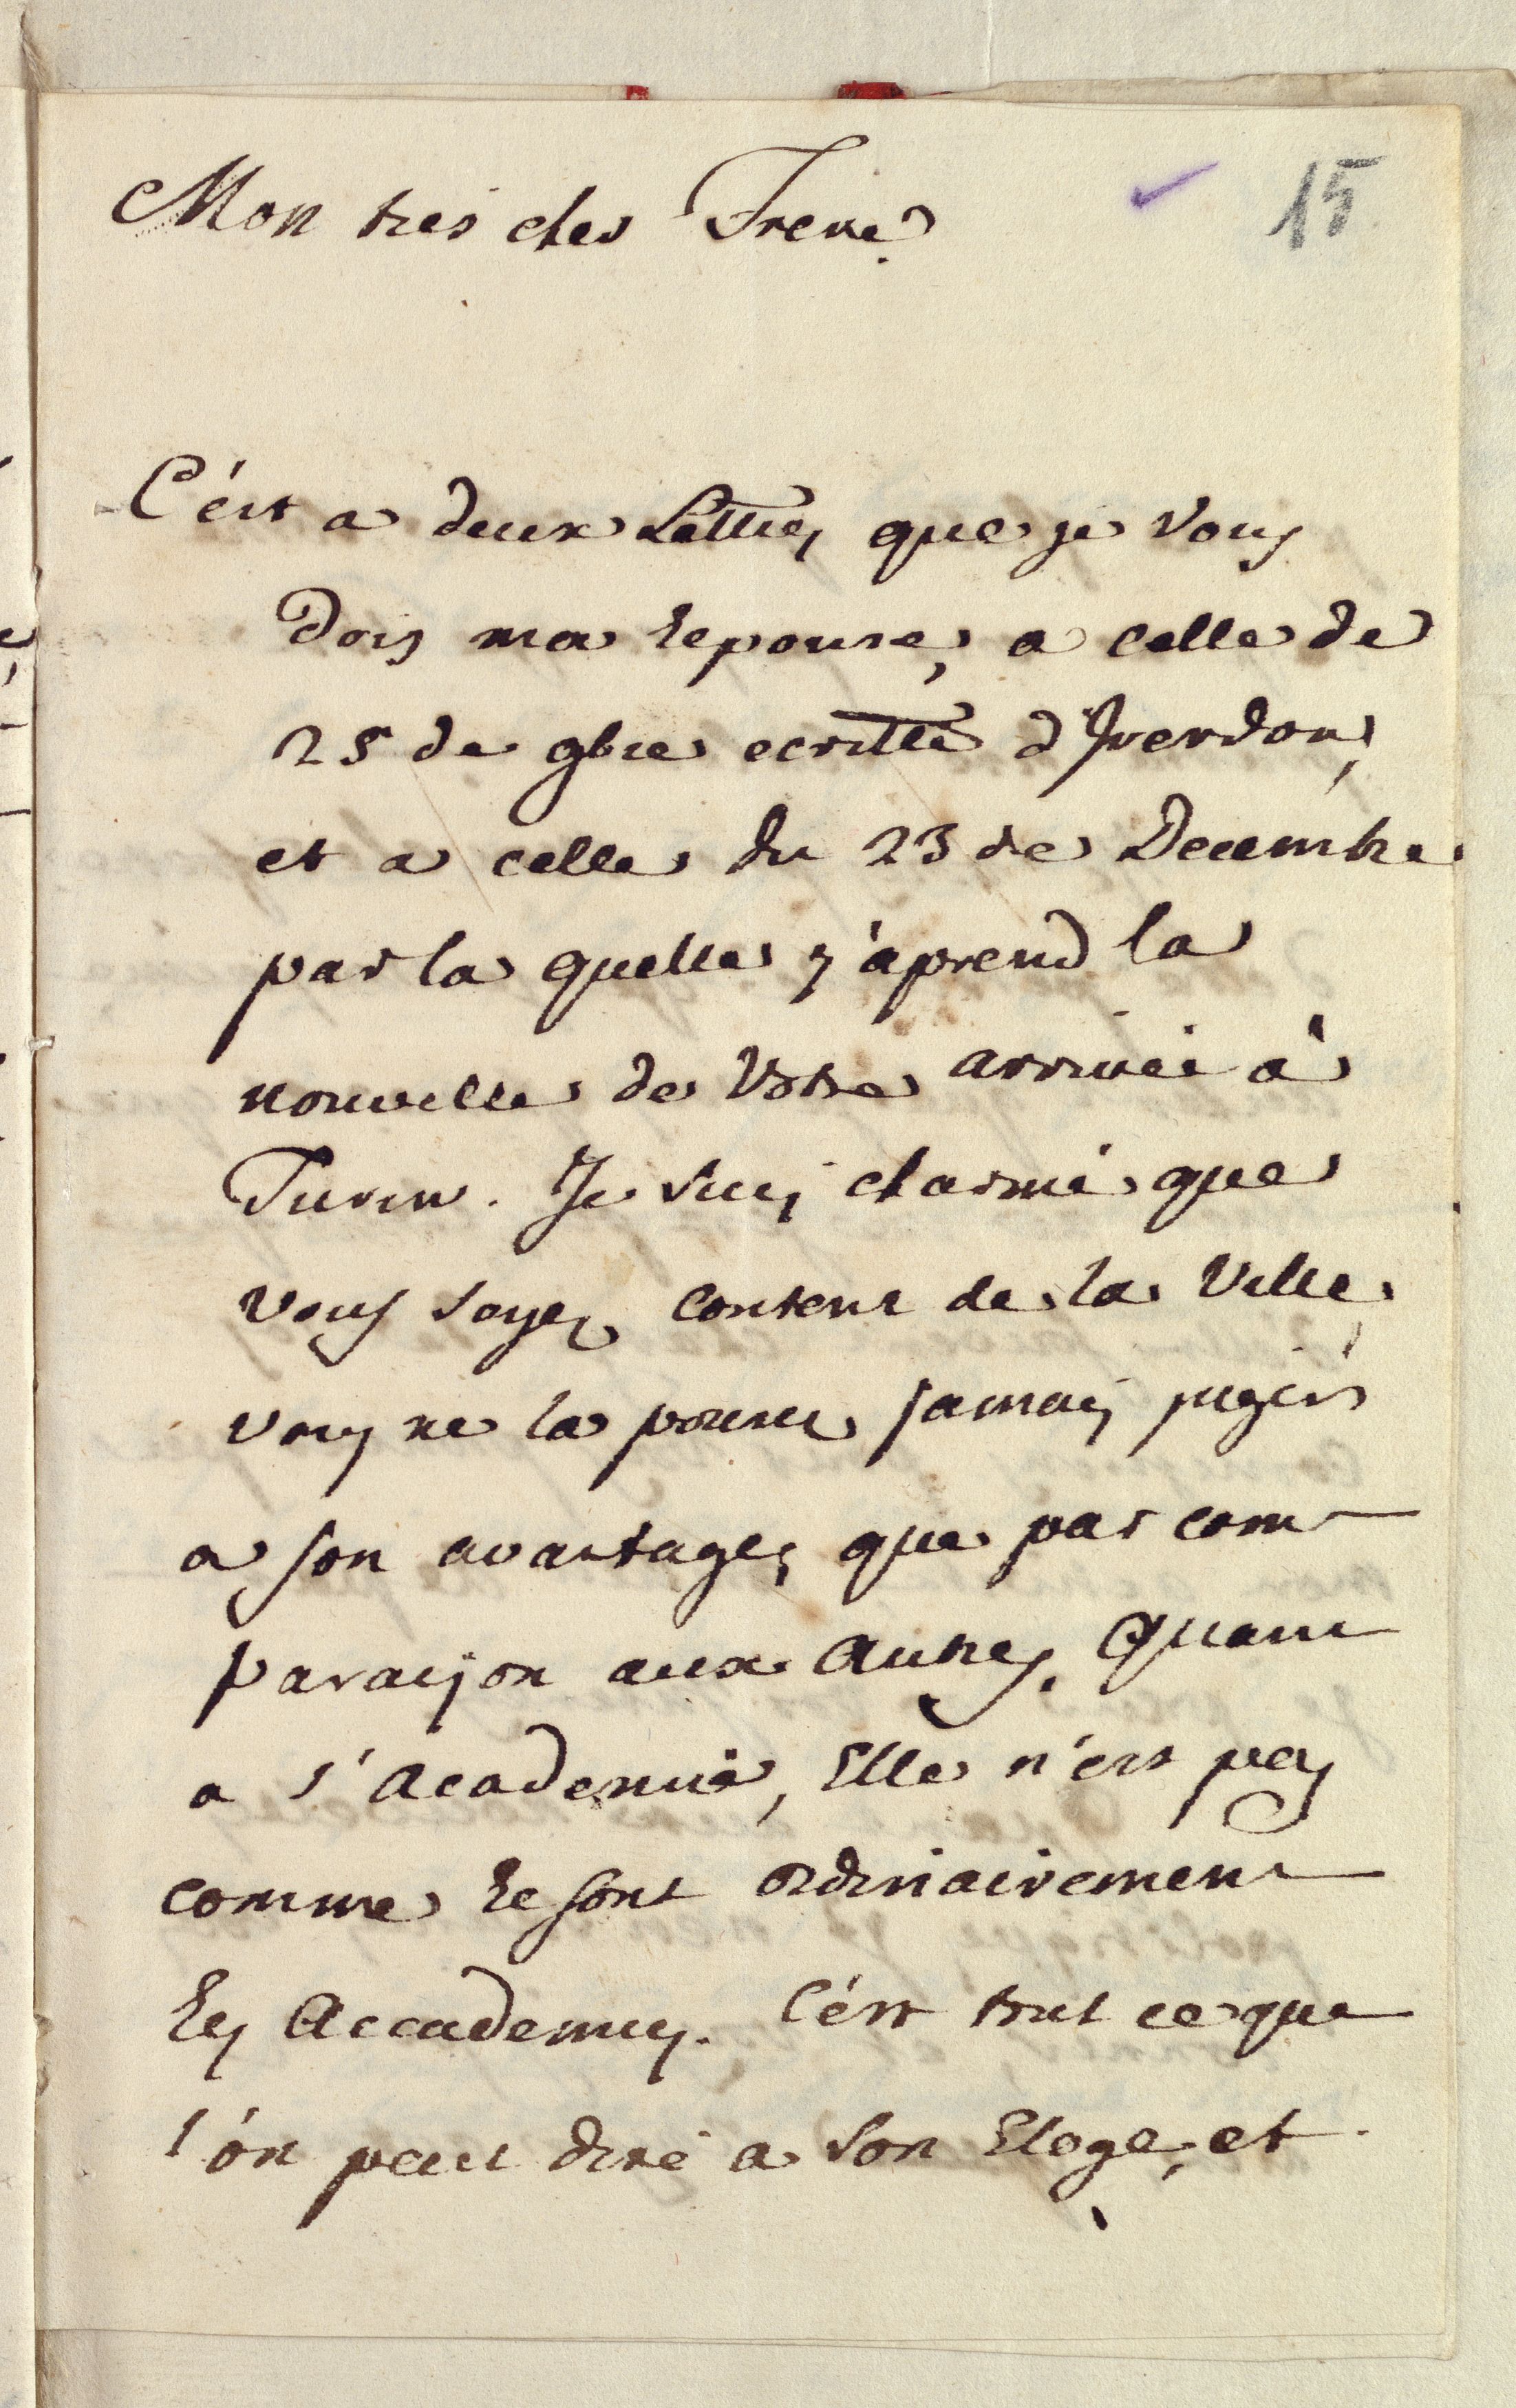 15
Mon tres cher Frere
C'est a deux Lettres que je vous
dois ma reponse, a celle de
25 de 9bre ecritte d'Iverdon,
et a celle du 23 de Decembre
par la quelle j'aprend la
nouvelle de Votre arrivée à
Turin. Je suis charmé que
vous soyez content de la Ville,
vous ne la pouvez jamais juger
a son avantage, que par com-
paraison aux Autres. Quant
a l'Academie, Elle n'est pas
comme le sont ordinairement
les Accademies. C'est tout ce que
l'on peut dire a son Eloge, et